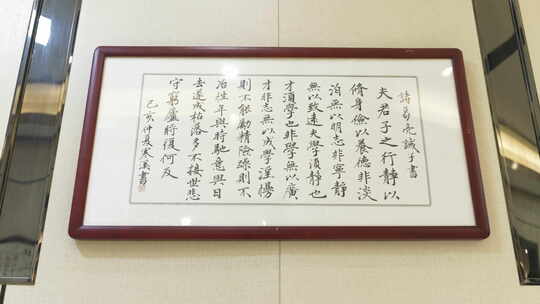 諸葛亮誡子書
夫君子之行靜以
修身儉以養德非淡
泊無以明志非寧靜
無以致遠夫學須靜也
才須學也非學無以廣
才非志無以成學淫慢
則不能勵精險躁則不
治性年與時馳意與日
去遂成枯落多不接世悲
守窮廬將復何及
己亥仲夏寒溪書